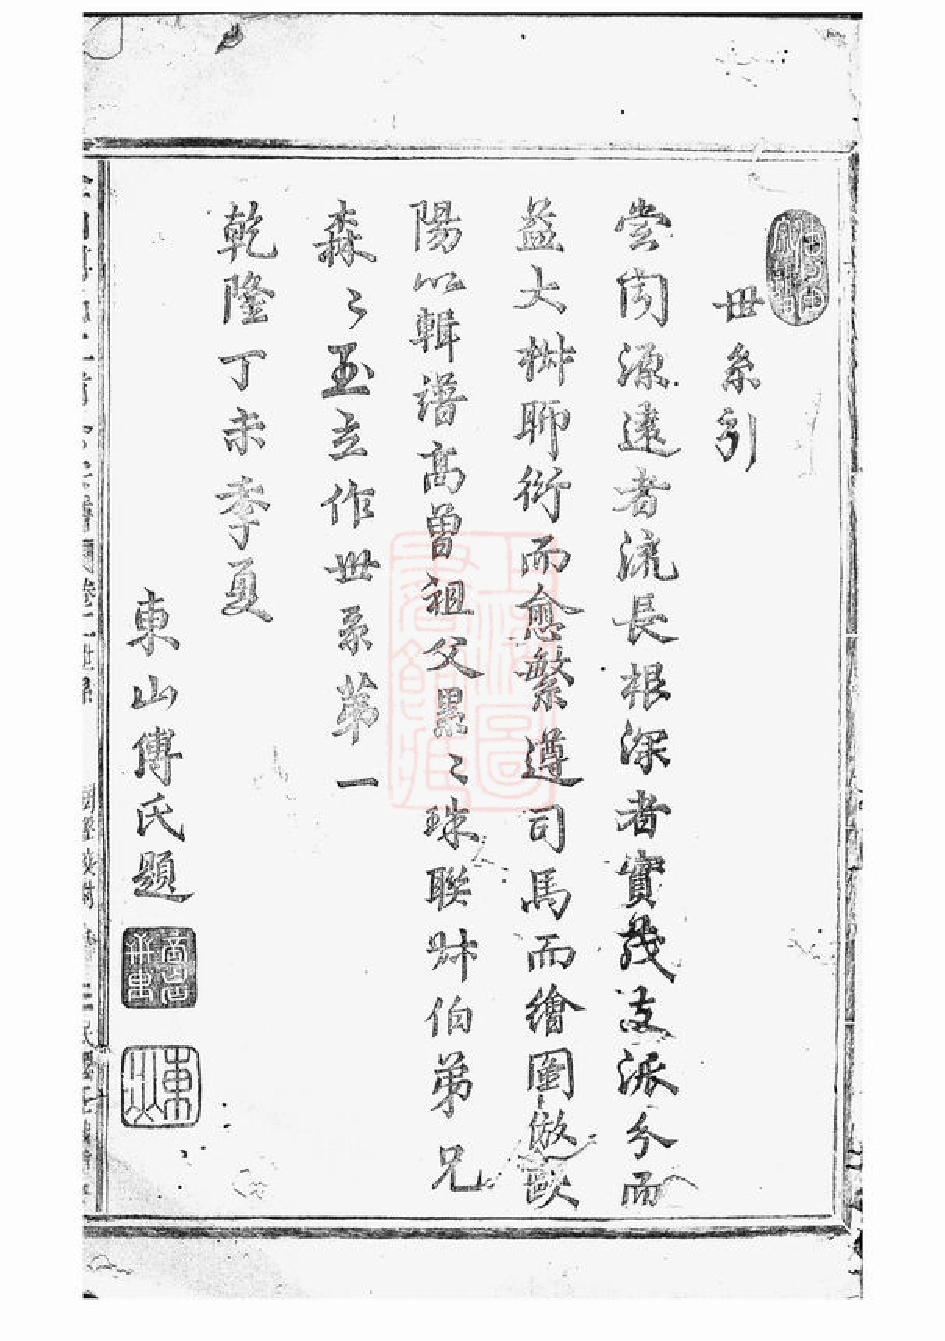 世系引
嘗聞源遠者流長根深者實茂支派分而
益大椒聊衍而愈繁遵司馬而繪圖倣歐
陽以輯譜高曾祖父累〻珠聯叔伯弟兄
森〻玉立作世系第一
乾隆丁未季夏
東山傅氏題